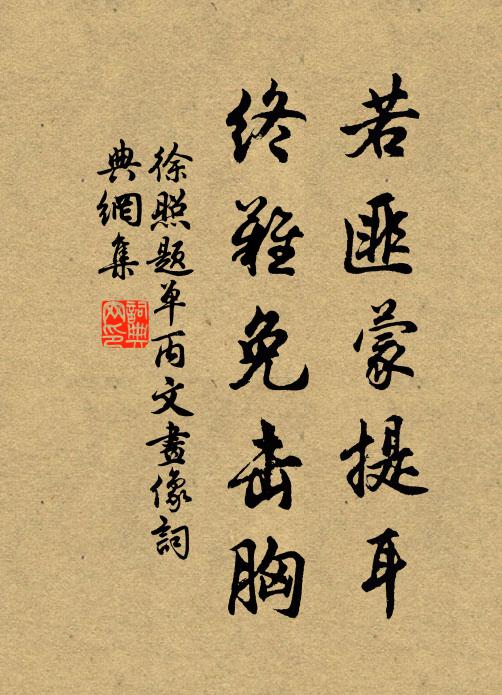 若匪蒙提耳
终难免击胸
徐照题单丙文畫像詞
典網集
詞典網印